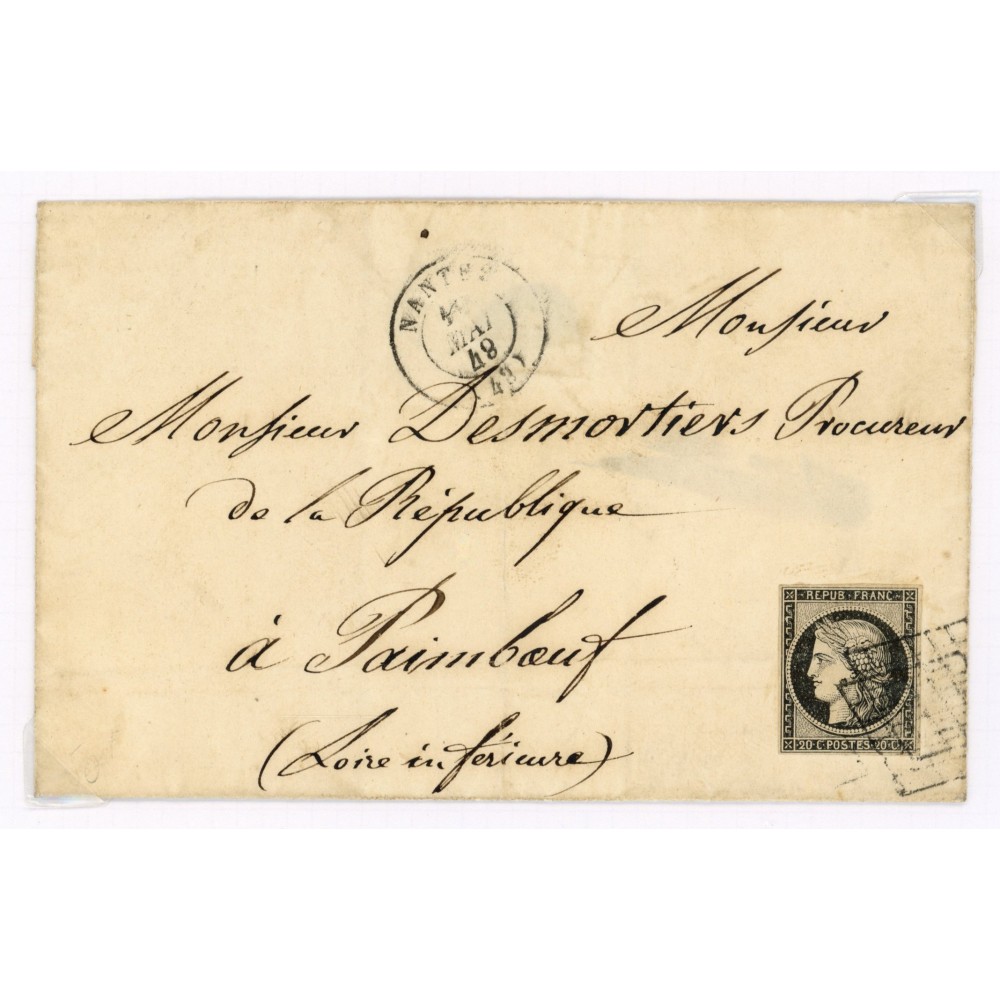 NANTES
MAI
48
Monsieur
Monsieur Desmortiers Procureur
de la République
à Paimboeuf
(Loire inférieure)
REPUB·FRANC
20·C·POSTES·20·C